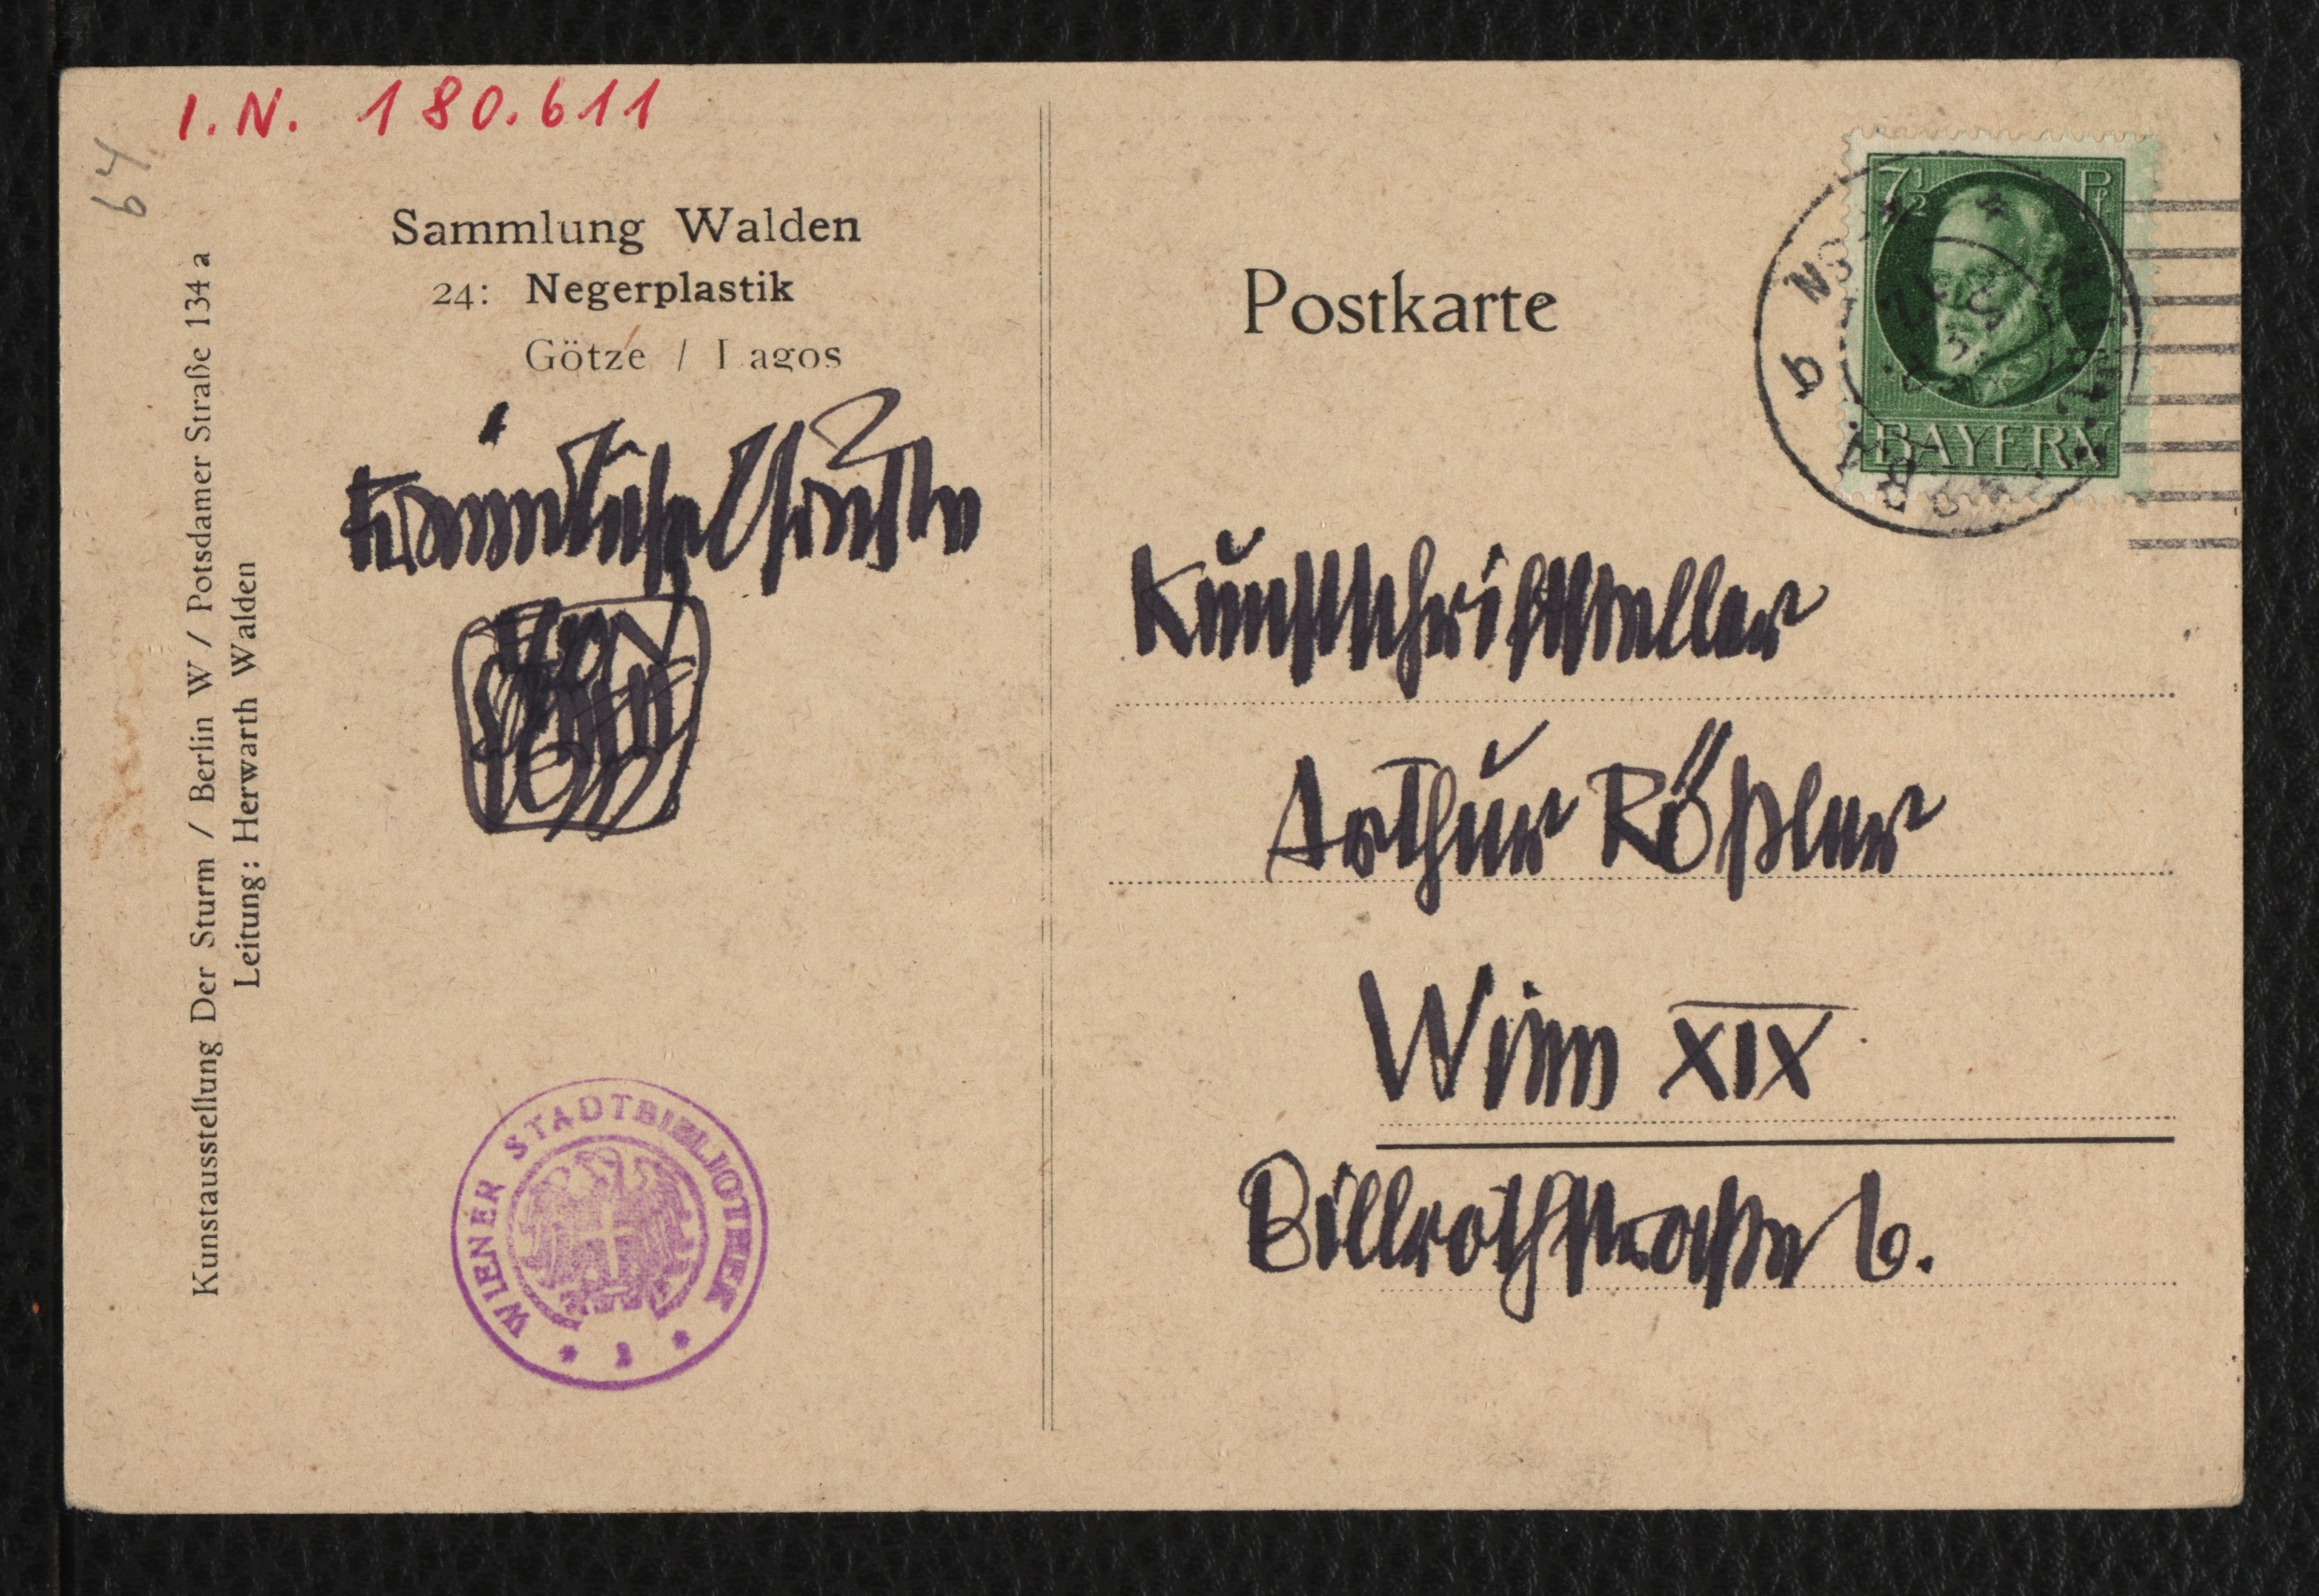 I.N. 180.611
64
Sammlung Walden
24: Negerplastik
Götze / Lagos
Kunstausstellung Der Sturm / Berlin W / Potsdamer Straße 134 a
Leitung: Herwarth Walden
Postkarte
7½ Pf
BAYERN
Kunstschriftsteller
Arthur Rößler
Wien XIX
Billrothstraße 6.
WIENER STADTBIBLIOTHEK